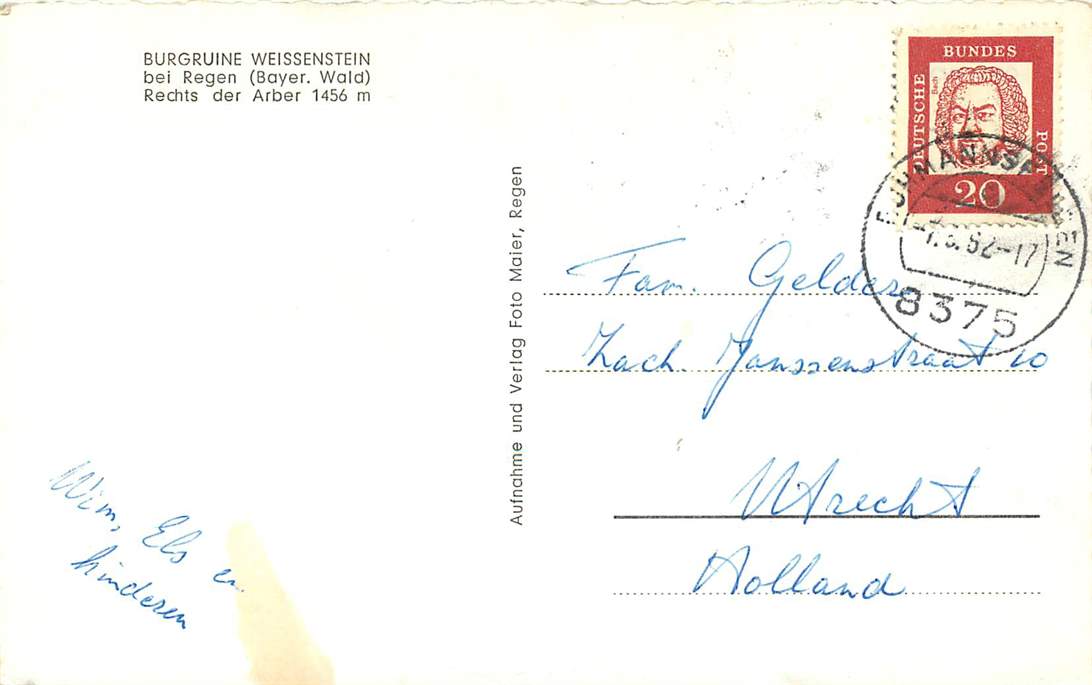 BURGRUINE WEISSENSTEIN
bei Regen (Bayer. Wald)
Rechts der Arber 1456 m
Aufnahme und Verlag Foto Maier, Regen
DEUTSCHE
BUNDES
POST
Bach
20
62-17
8375
Fam. Gelder
Zach. Janssenstraat 10
Utrecht
Holland
Wim, Els en
kinderen